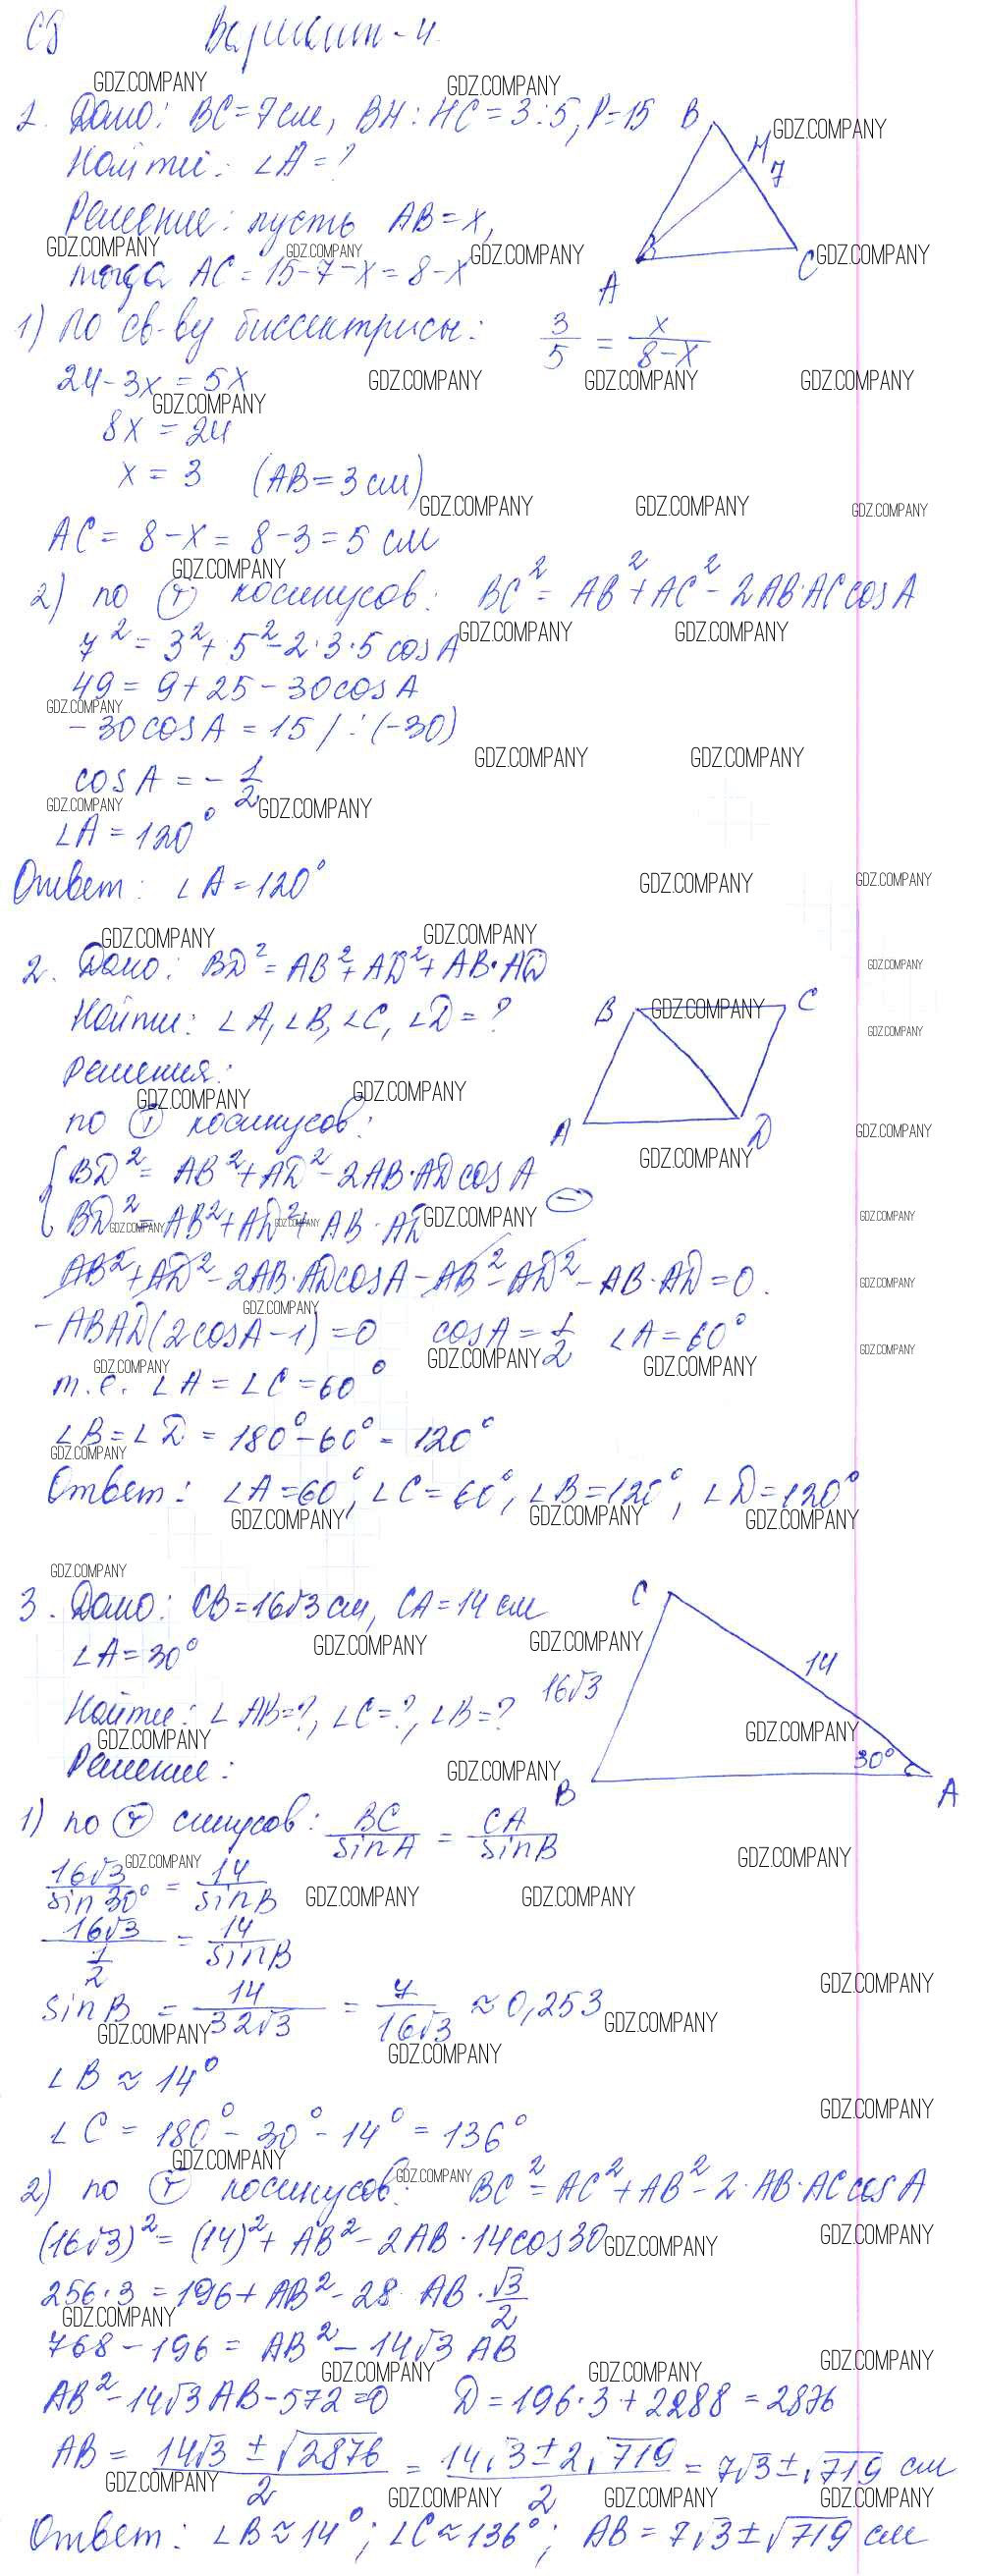 С8 Вариант-4
1. Дано: BC=7см, BH:HC=3:5, P=15
Найти: ∠A=?
Решение: пусть AB=x,
тогда AC=15-7-x=8-x
B
H
7
B
A
C
1) по св-ву биссектрисы: 3/5 = x/(8-x)
24-3x=5x
8x=24
x=3 (AB=3см)
AC=8-x=8-3=5 см
2) по Ⓣ косинусов: BC²=AB²+AC²-2AB·AC cosA
7²=3²+5²-2·3·5 cosA
49=9+25-30cosA
-30cosA=15 /:(-30)
cosA=-1/2
∠A=120°
Ответ: ∠A=120°
2. Дано: BD²=AB²+AD²+AB·AD
Найти: ∠A, ∠B, ∠C, ∠D=?
Решения:
по Ⓣ косинусов:
B
C
A
D
{BD²=AB²+AD²-2AB·AD cosA
{BD²=AB²+AD²+AB·AD ⊖
AB²+AD²-2AB·ADcosA-AB²-AD²-AB·AD=0.
-ABAD(2cosA-1)=0 cosA=1/2 ∠A=60°
т.е. ∠A=∠C=60°
∠B=∠D=180°-60°=120°
Ответ: ∠A=60°, ∠C=60°, ∠B=120°, ∠D=120°
3. Дано: CB=16√3 см, CA=14 см
∠A=30°
Найти: ∠AB=?, ∠C=?, ∠B=?
Решение:
C
14
16√3
30°
B
A
1) по Ⓣ синусов: BC/sinA = CA/sinB
16√3/sin30° = 14/sinB
16√3/(1/2) = 14/sinB
sinB = 14/(32√3) = 7/(16√3) ≈ 0,253
∠B ≈ 14°
∠C = 180°-30°-14° = 136°
2) по Ⓣ косинусов: BC²=AC²+AB²-2·AB·AC cosA
(16√3)²=(14)²+AB²-2AB·14cos30
256·3=196+AB²-28·AB·√3/2
768-196=AB²-14√3 AB
AB²-14√3 AB-572=0 D=196·3+2288=2876
AB = (14√3±√2876)/2 = (14√3±2√719)/2 = 7√3±√719 см
Ответ: ∠B≈14°; ∠C≈136°; AB=7√3±√719 см
GDZ.COMPANY